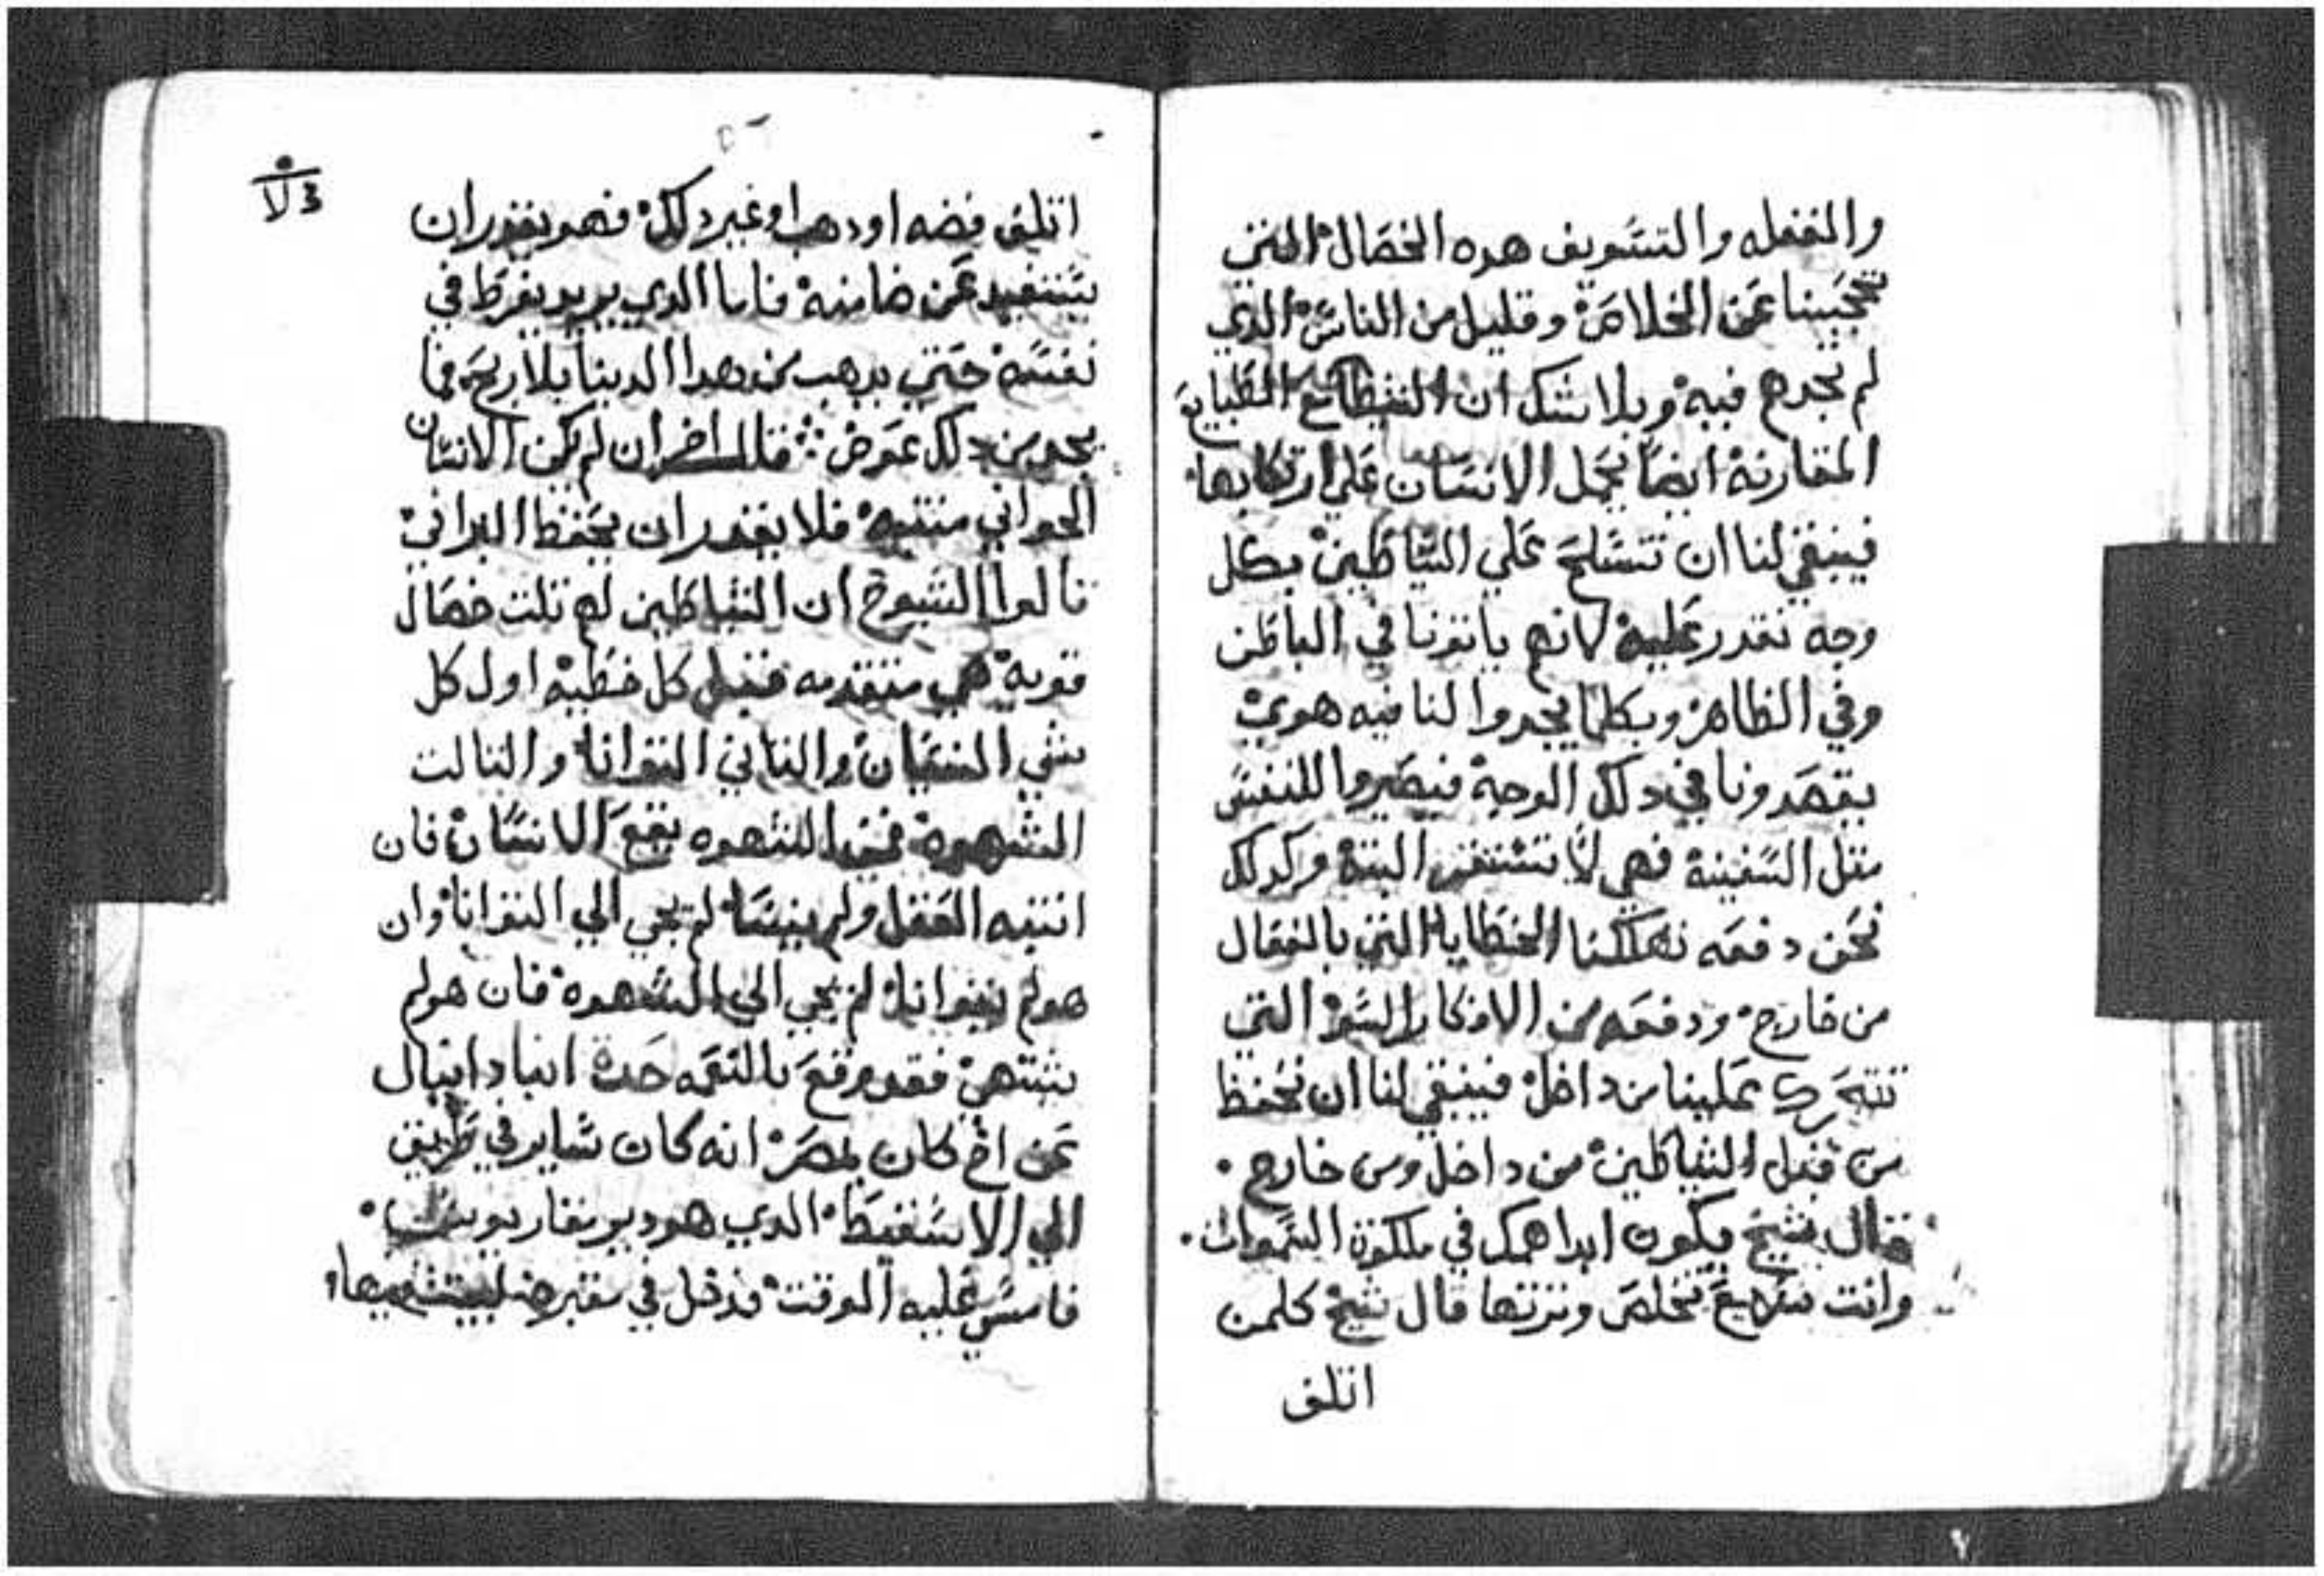 والغفله والتسويف هده الخصال التي
تحجبنا عن الخلاص وقليل من الناس الدي
لم تجدهم فيه وبلا شك ان الطبايع
المقارنة ايضا تحمل الانسان علي ارتكابها
فينبغي لنا ان نتسلح علي الشياطين بكل
وجه نقدر عليه لانهم ياتونا في الباطن
وفي الظاهر وبكلما يجدوا لنا فيه هوي
يقصدونا في دلك الوجه فيصيروا للنفس
متل السفينة فهي لا تستقر البتة وكدلك
نحن دفعه تهلكنا الخطايا التي بالفعال
من خارج ودفعه من الافكار السو التي
تتحرك علينا من داخل فينبغي لنا ان نحتفظ
من قبل الشياطين من داخل ومن خارج
قال شيخ يكون ابدا همك في ملكوت السموات
وانت سريع تخلص وترتها قال شيخ كلمن
اتلف
اتلف فضه او دهب او غير دلك فهو يقدر ان
يستفيد عوضا منه فاما الدي يريد يفرط في
نفسه حتي يدهب من هدا الدينا بلا ربح فما
يجد من دلك عوض قال اخر ان لم يكن الانسان
الجواني منتبه فلا يقدر ان يحفظ البراني
قالوا الشيوخ ان الشياطين لهم تلت خصال
قوية هي متقدمه قبل كل خطية اول كل
شي النسيان والتاني التوانا والتالت
الشهوة فمن الشهوه يقع الانسان فان
انتبه العقل ولم ينسا لم يجي الي التوانا وان
هو لم يتوانا لم يجي الي الشهوه فان هو لم
يشتهي فقد وقع بالنعمه حدت انبا دانيال
عن اخ كان بمصر انه كان ساير في طريق
الي الاسقيط الدي هو دير مقاريوس
فامسي عليه الوقت فدخل في مقبره ليبيت فيها